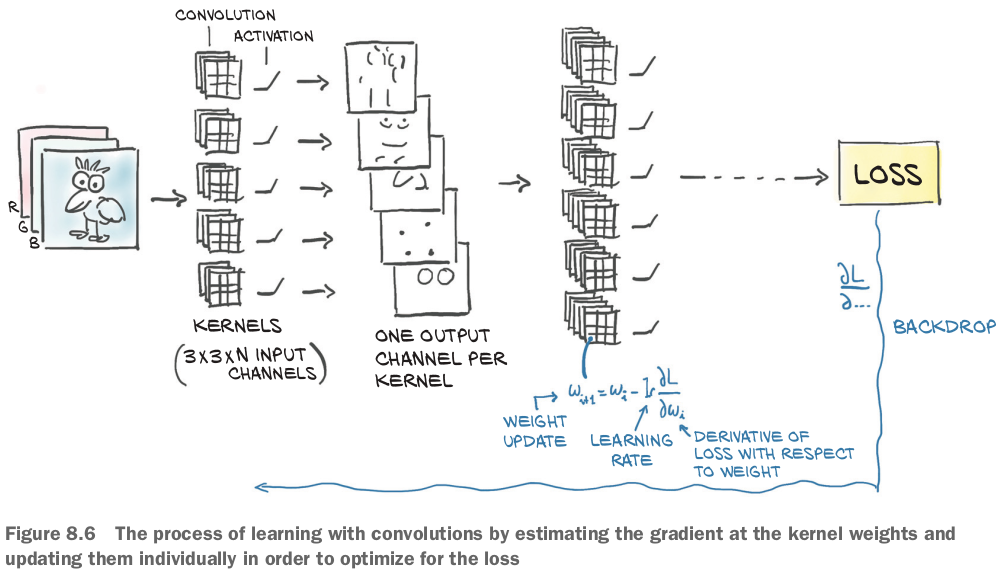 CONVOLUTION
ACTIVATION
R
G
B
KERNELS
(3x3xN INPUT
CHANNELS)
ONE OUTPUT
CHANNEL PER
KERNEL
LOSS
∂L
∂...
BACKDROP
ω_{i+1} = ω_i - lr ∂L/∂ω_i
WEIGHT
UPDATE
LEARNING
RATE
DERIVATIVE OF
LOSS WITH RESPECT
TO WEIGHT
Figure 8.6 The process of learning with convolutions by estimating the gradient at the kernel weights and
updating them individually in order to optimize for the loss